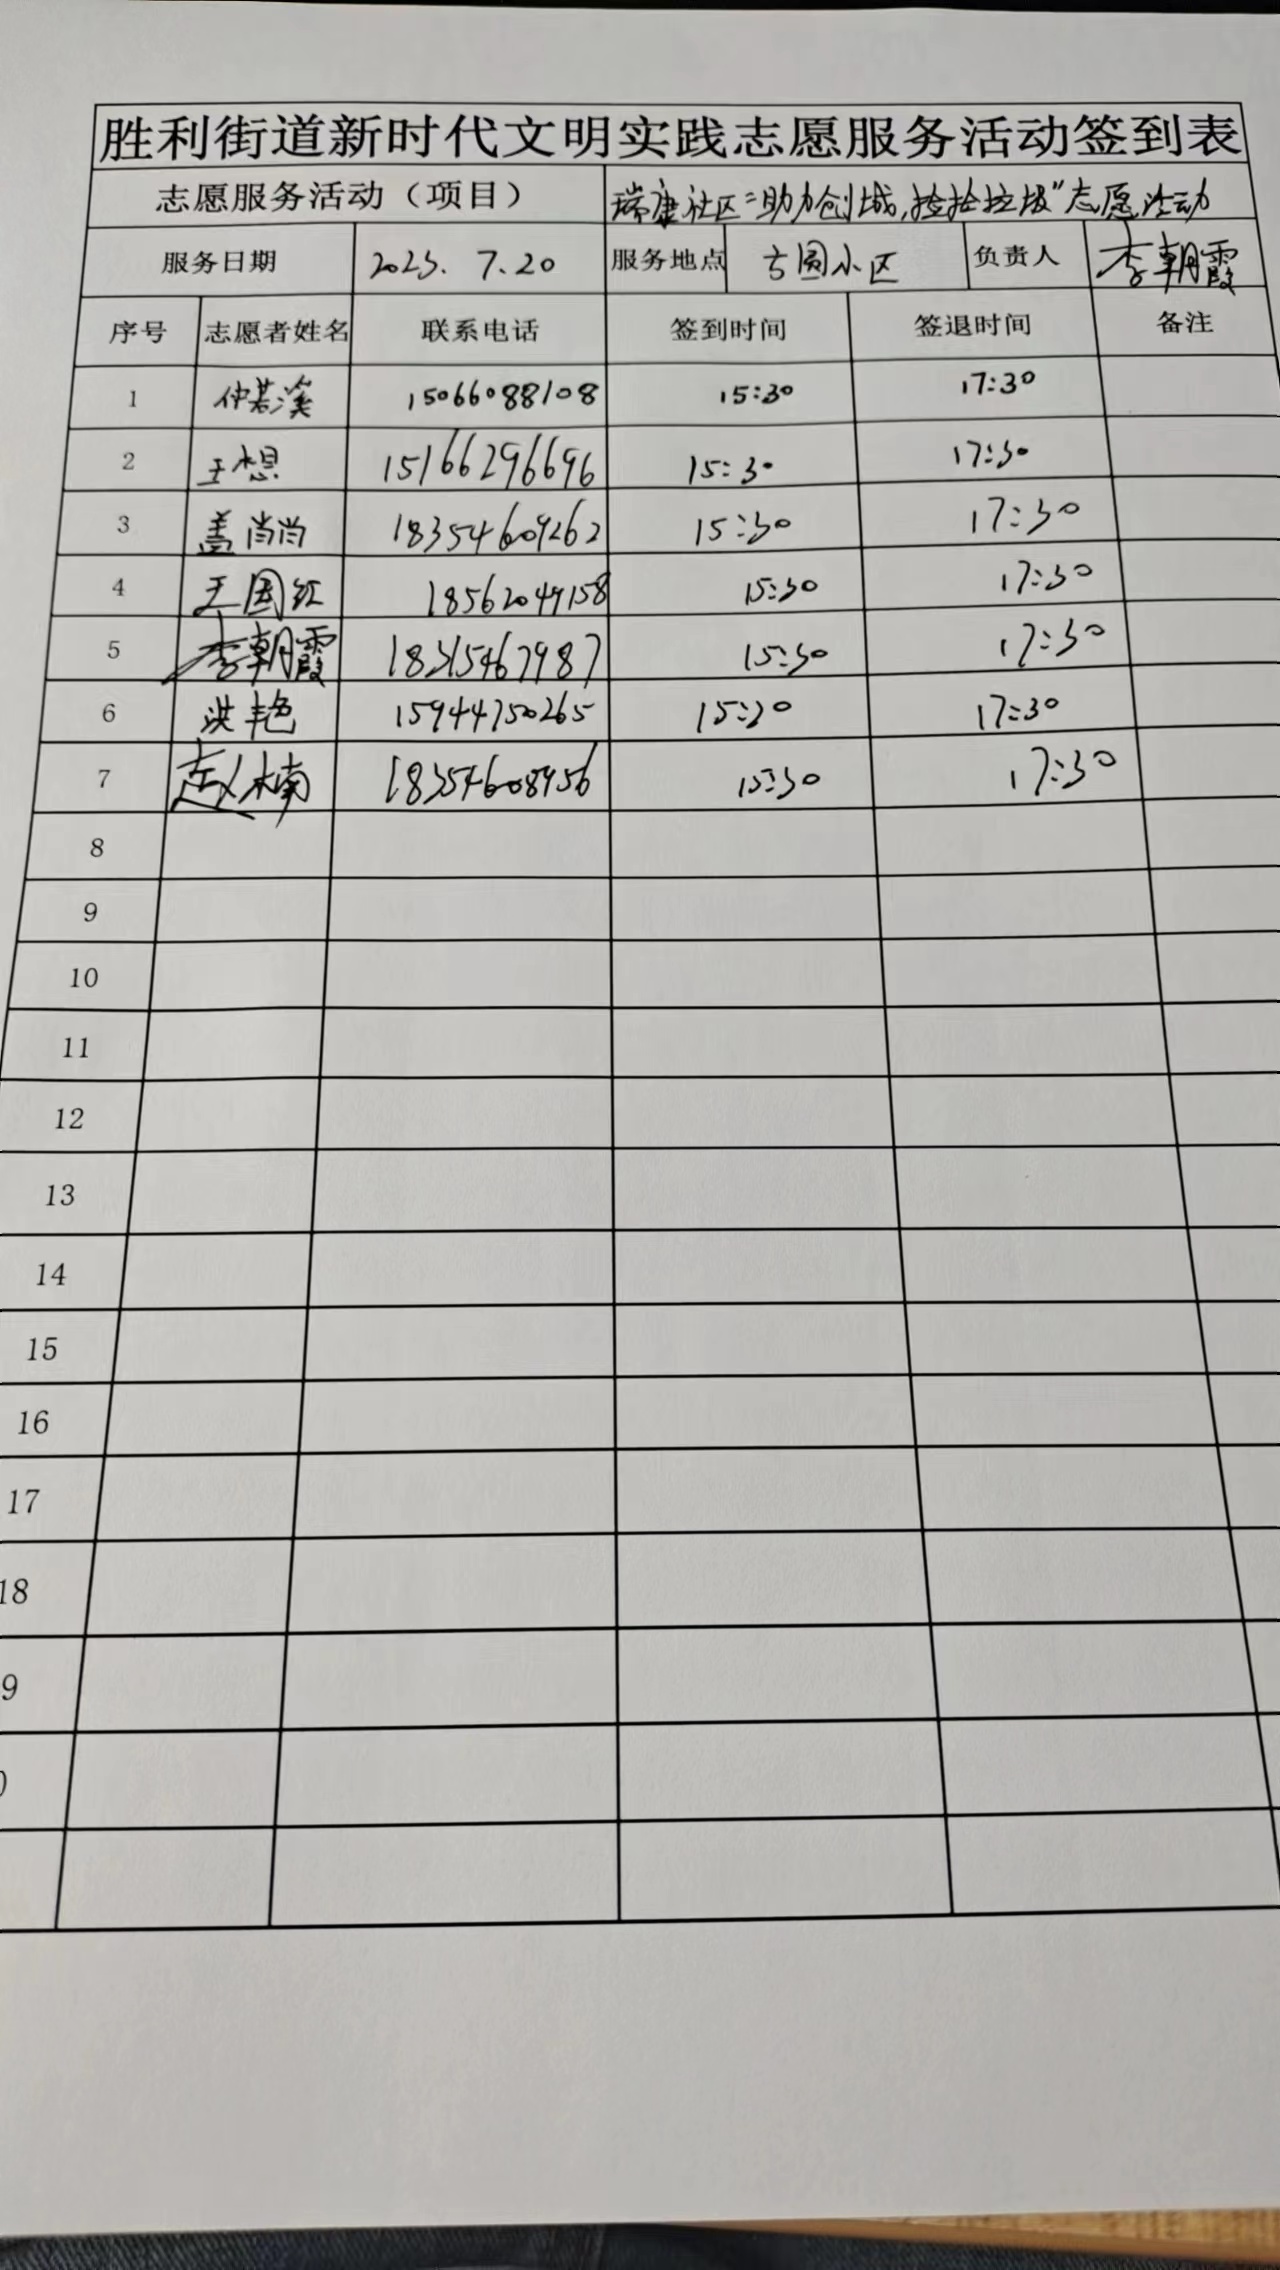 胜利街道新时代文明实践志愿服务活动签到表
志愿服务活动（项目） 瑞康社区“助力创城，捡拾垃圾”志愿活动
服务日期 2023. 7.20 服务地点 方圆小区 负责人 李朝霞
序号 志愿者姓名 联系电话 签到时间 签退时间 备注
1 仲若溪 15066088108 15:30 17:30
2 王想 15166296696 15:30 17:30
3 盖尚尚 18354609262 15:30 17:30
4 王国红 15:30 17:30
5 李朝霞 18315467987 15:30 17:30
6 洪艳 15944750265 15:30 17:30
7 赵楠 18354608956 15:30 17:30
8
9
10
11
12
13
14
15
16
17
18
9
0